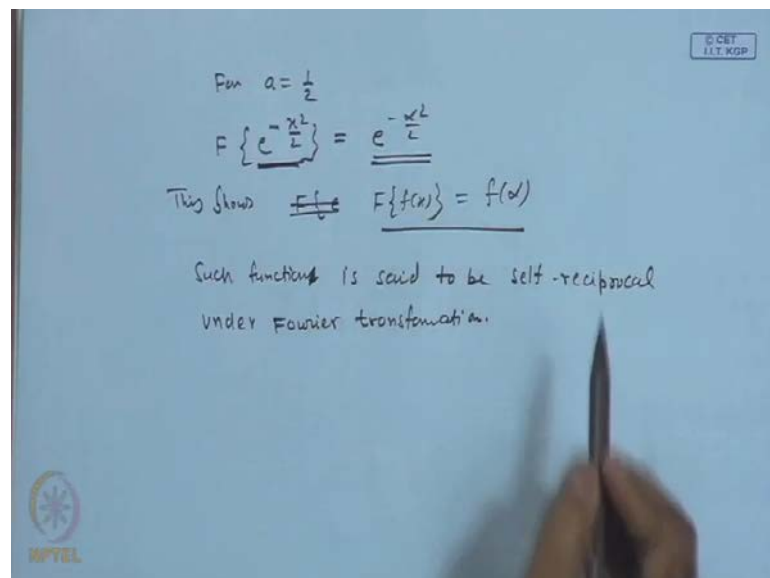 © CET
I.I.T. KGP
For a = 1/2
F { e^{-x²/2} } = e^{-α²/2}
This shows F{e F{f(x)} = f(α)
Such function is said to be self-reciprocal
under Fourier transformation.
NPTEL